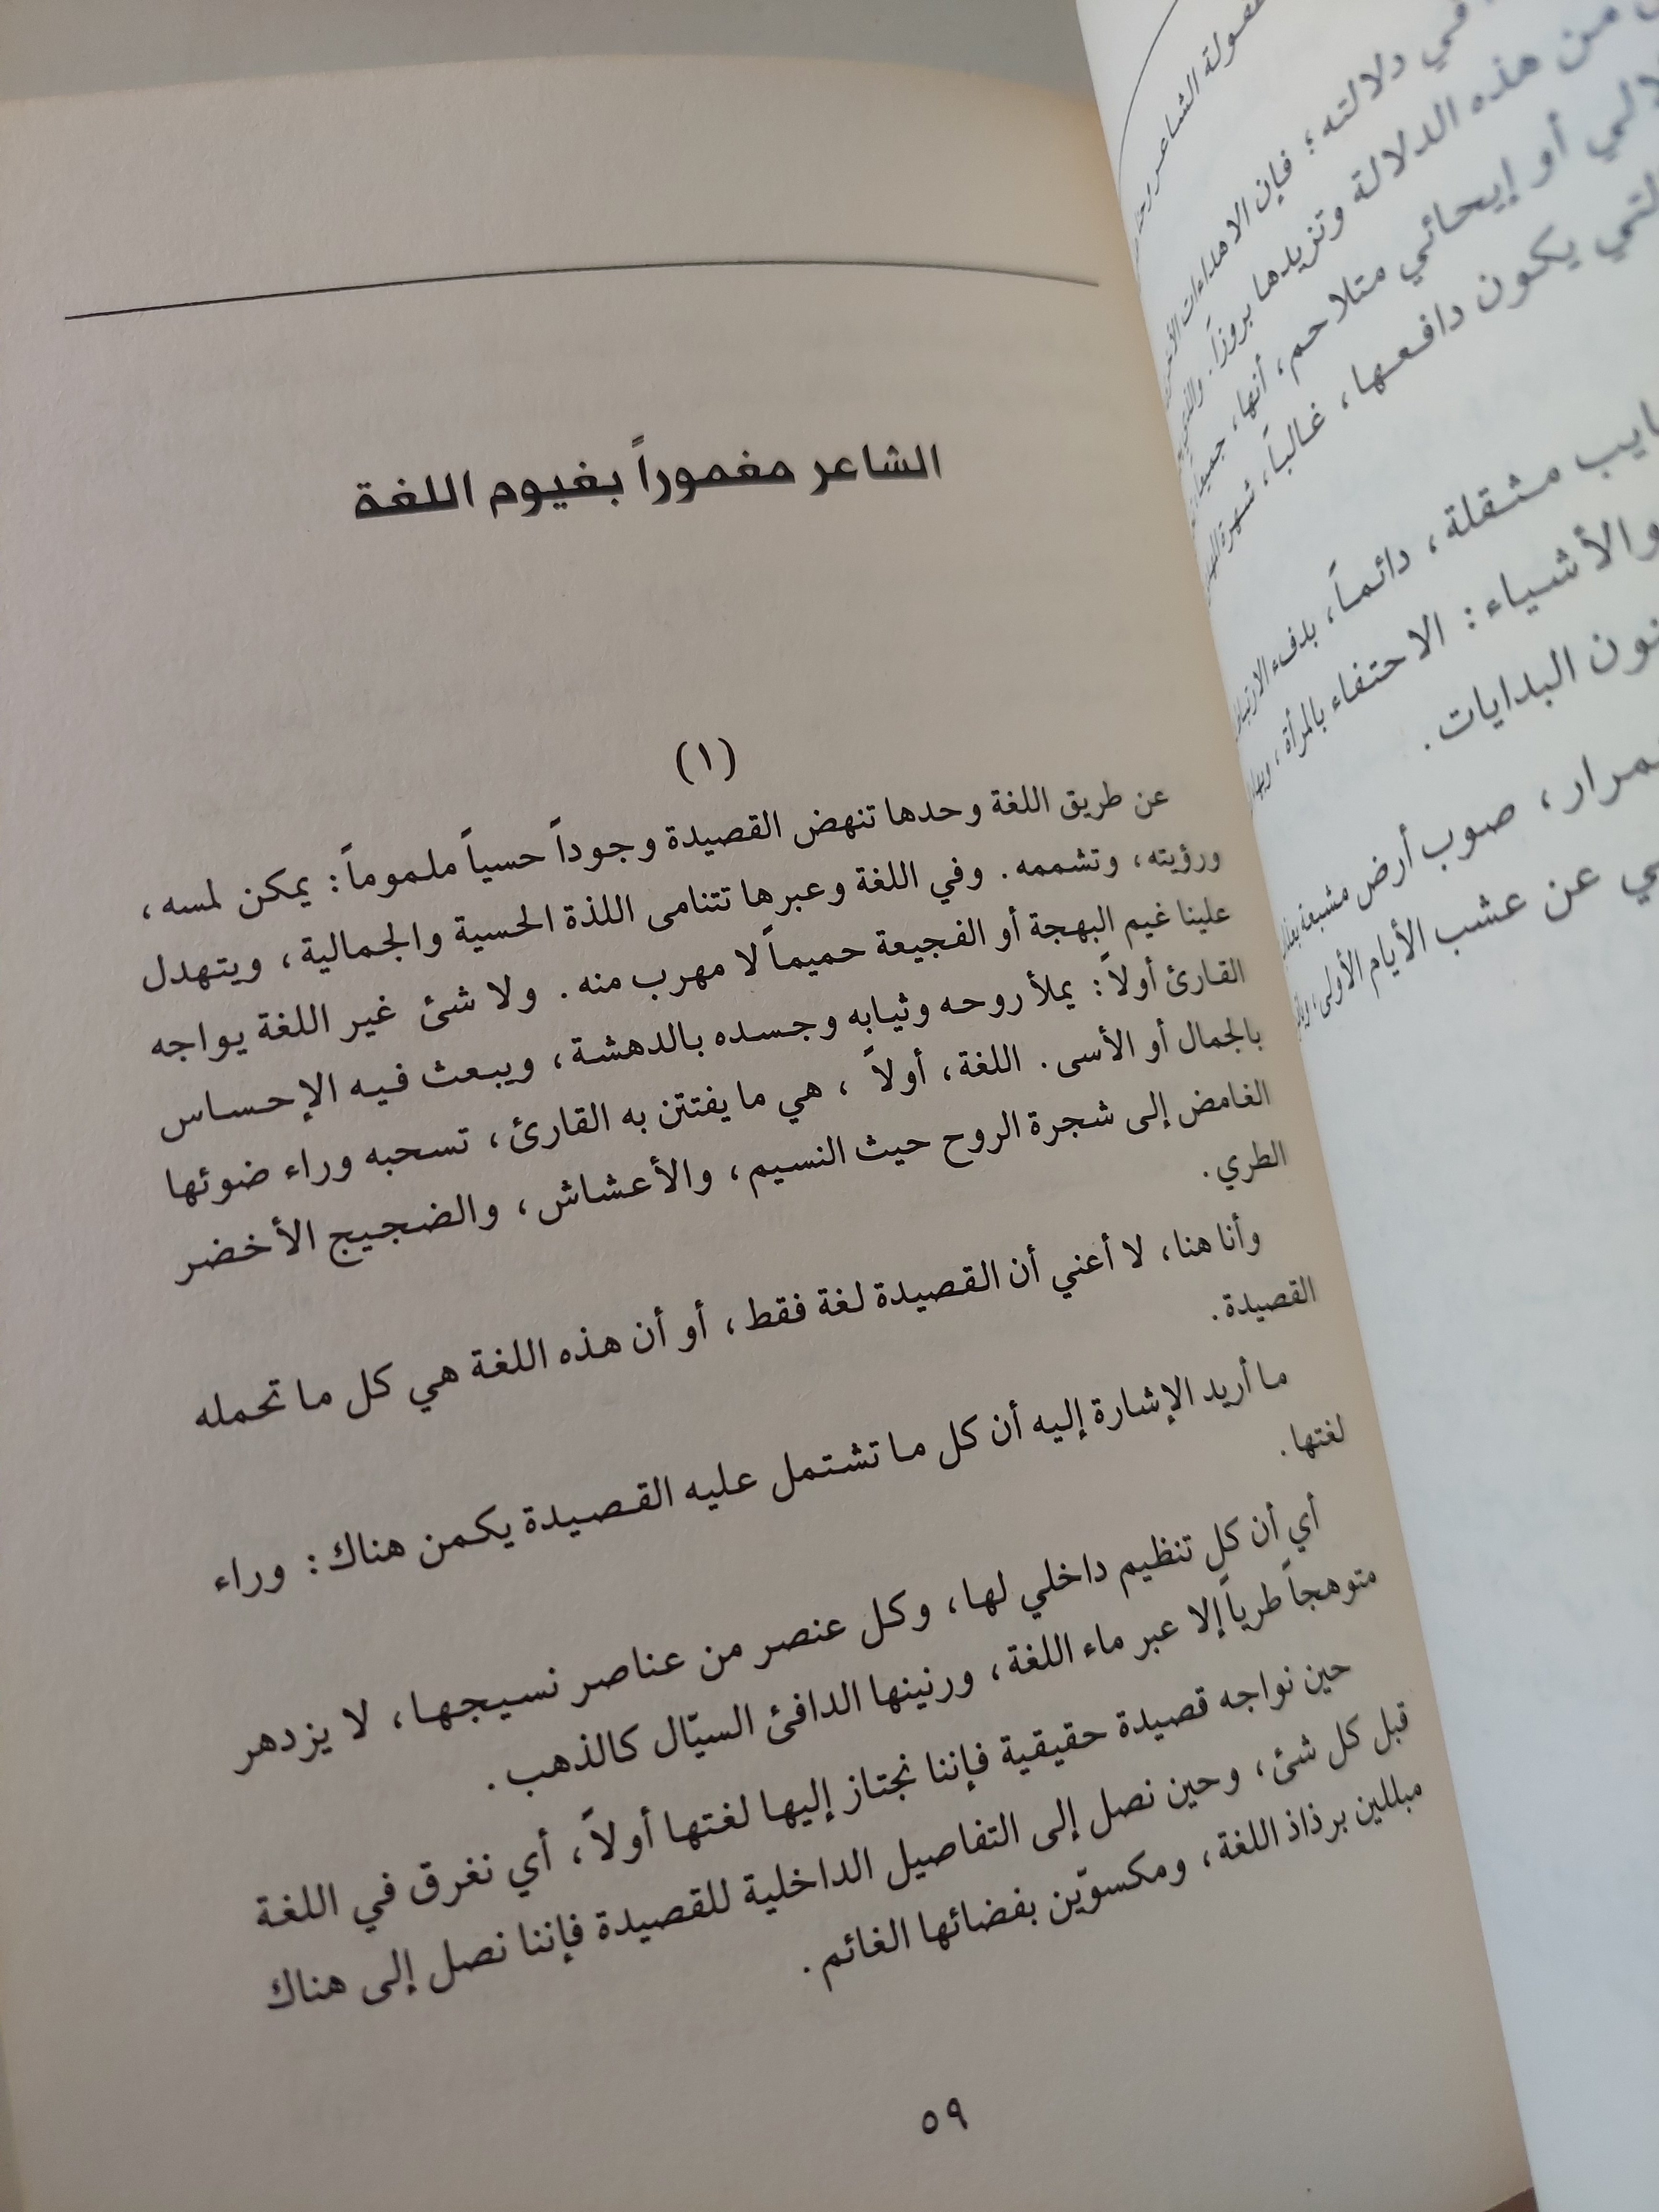 الشاعر مغموراً بغيوم اللغة
(١)
عن طريق اللغة وحدها تنهض القصيدة وجوداً حسياً ملموماً: يمكن لمسه،
ورؤيته، وتشممه. وفي اللغة وعبرها تتنامى اللذة الحسية والجمالية، ويتهدل
علينا غيم البهجة أو الفجيعة حميماً لا مهرب منه. ولا شئ غير اللغة يواجه
القارئ أولاً: يملأ روحه وثيابه وجسده بالدهشة، ويبعث فيه الإحساس
بالجمال أو الأسى. اللغة، أولاً، هي ما يفتتن به القارئ، تسحبه وراء ضوئها
الغامض إلى شجرة الروح حيث النسيم، والأعشاش، والضجيج الأخضر
الطري.
وأنا هنا، لا أعني أن القصيدة لغة فقط، أو أن هذه اللغة هي كل ما تحمله
القصيدة.
ما أريد الإشارة إليه أن كل ما تشتمل عليه القصيدة يكمن هناك: وراء
لغتها.
أي أن كل تنظيم داخلي لها، وكل عنصر من عناصر نسيجها، لا يزدهر
متوهجاً طرياً إلا عبر ماء اللغة، ورنينها الدافئ السيّال كالذهب.
حين نواجه قصيدة حقيقية فإننا نجتاز إليها لغتها أولاً، أي نغرق في اللغة
قبل كل شئ، وحين نصل إلى التفاصيل الداخلية للقصيدة فإننا نصل إلى هناك
مبللين برذاذ اللغة، ومكسوّين بفضائها الغائم.
٥٩
الشاعر
في دلالته؛ فإن الاهداءات
من هذه الدلالة وتزيدها بروزاً.
أو إيحائي متلاحم، أنها،
يكون دافعها، غالباً،
مثقلة، دائماً، بدفء
والأشياء: الاحتفاء بالمرأة،
البدايات.
صوب أرض مشبعة
عن عشب الأيام الأولى،